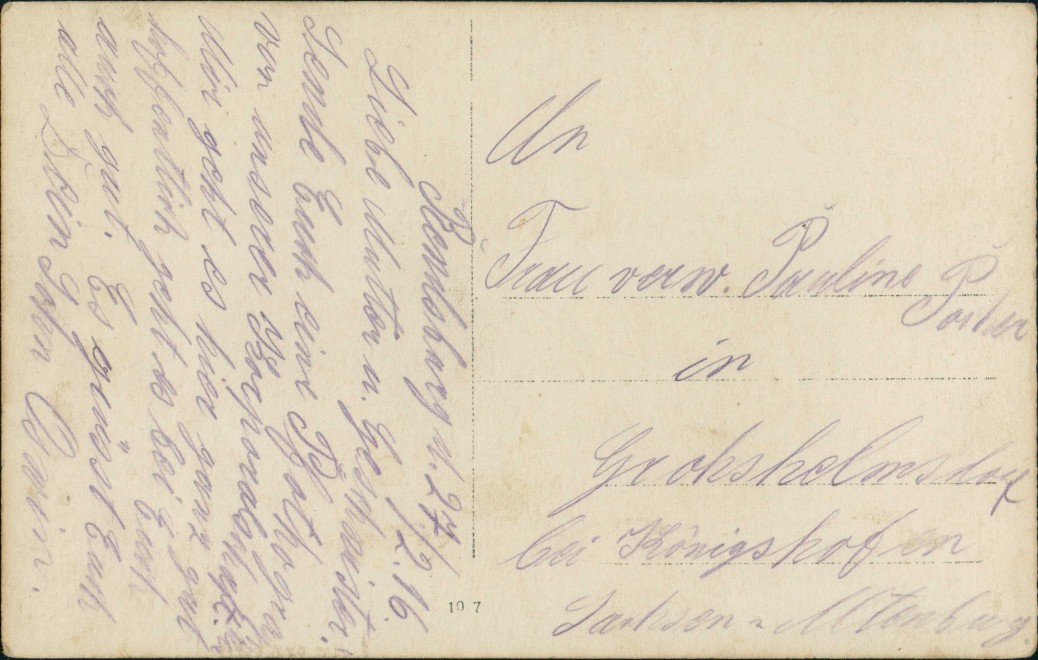 Ronnsburg d. 27./2.16.
Liebe Mutter u. Geschwister!
Sende Euch eine Photogra
von unserer Korporalschaft.
Mir geht es hier ganz gut
hoffentlich geht es bei Euch
auch gut. Es grüsst Euch
alle Dein Sohn Erwin.
An
Frau verw. Pauline
in
Grosshelmsdorf
bei Königshofen
Sachsen-Altenburg
10 7